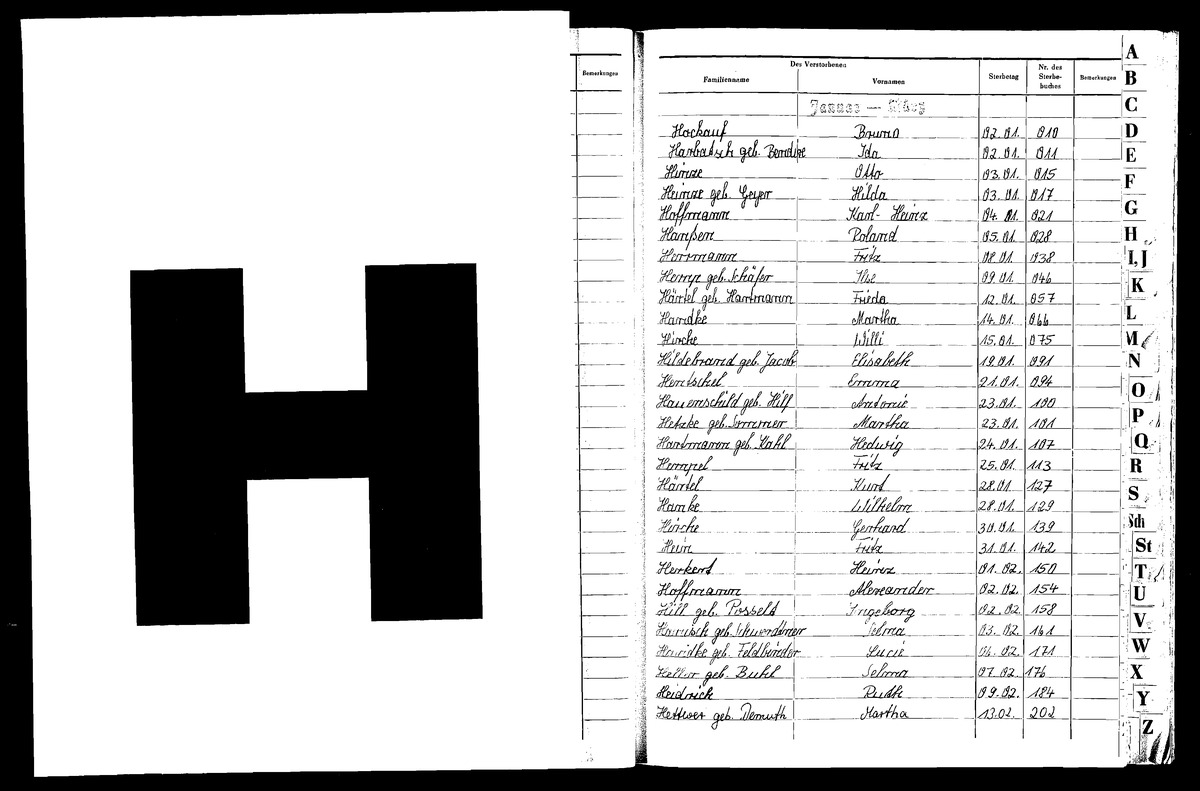 H
Bemerkungen
Des Verstorbenen
Familienname Vornamen Sterbetag Nr. des Sterbe-buches Bemerkungen
Januar — März
Hockauf Bruno 02.01. 010
Harbatsch geb. Bendixe Ida 02.01. 011
Hinze Otto 03.01. 015
Heinze geb. Geyer Hilda 03.01. 017
Hoffmann Karl-Heinz 04.01. 021
Hanßen Roland 05.01. 028
Herrmann Fritz 08.01. 038
Hempe geb. Schäfer Ilse 09.01. 046
Härtel geb. Hartmann Frieda 12.01. 057
Handke Martha 14.01. 066
Hirche Willi 15.01. 075
Hildebrand geb. Jacob Elisabeth 19.01. 091
Hentschel Emma 21.01. 094
Hauenschild geb. Hilf Antonie 23.01. 100
Hetzke geb. Martha 23.01. 101
Hartmann geb. Kahl Hedwig 24.01. 107
Hempel Fritz 25.01. 113
Härtel Kurt 28.01. 127
Hanke Wilhelm 28.01. 129
Hirche Gerhard 30.01. 139
Hein Fritz 31.01. 142
Herkert Heinz 01.02. 150
Hoffmann Alexander 02.02. 154
Hill geb. Posselt Ingeborg 02.02. 158
geb. Selma 03.02. 161
Handke geb. Feldbinder Lucie 06.02. 171
geb. Buhl Selma 07.02. 176
Heidrich Ruth 09.02. 184
Hettwer geb. Demuth Martha 13.02. 202
A
B
C
D
E
F
G
H
I, J
K
L
M
N
O
P
Q
R
S
Sch
St
T
U
V
W
X
Y
Z